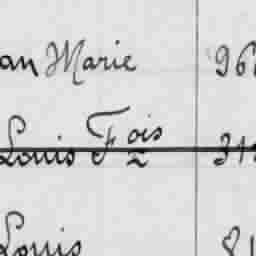 an Marie 96
Louis Fois 31
Louis 81